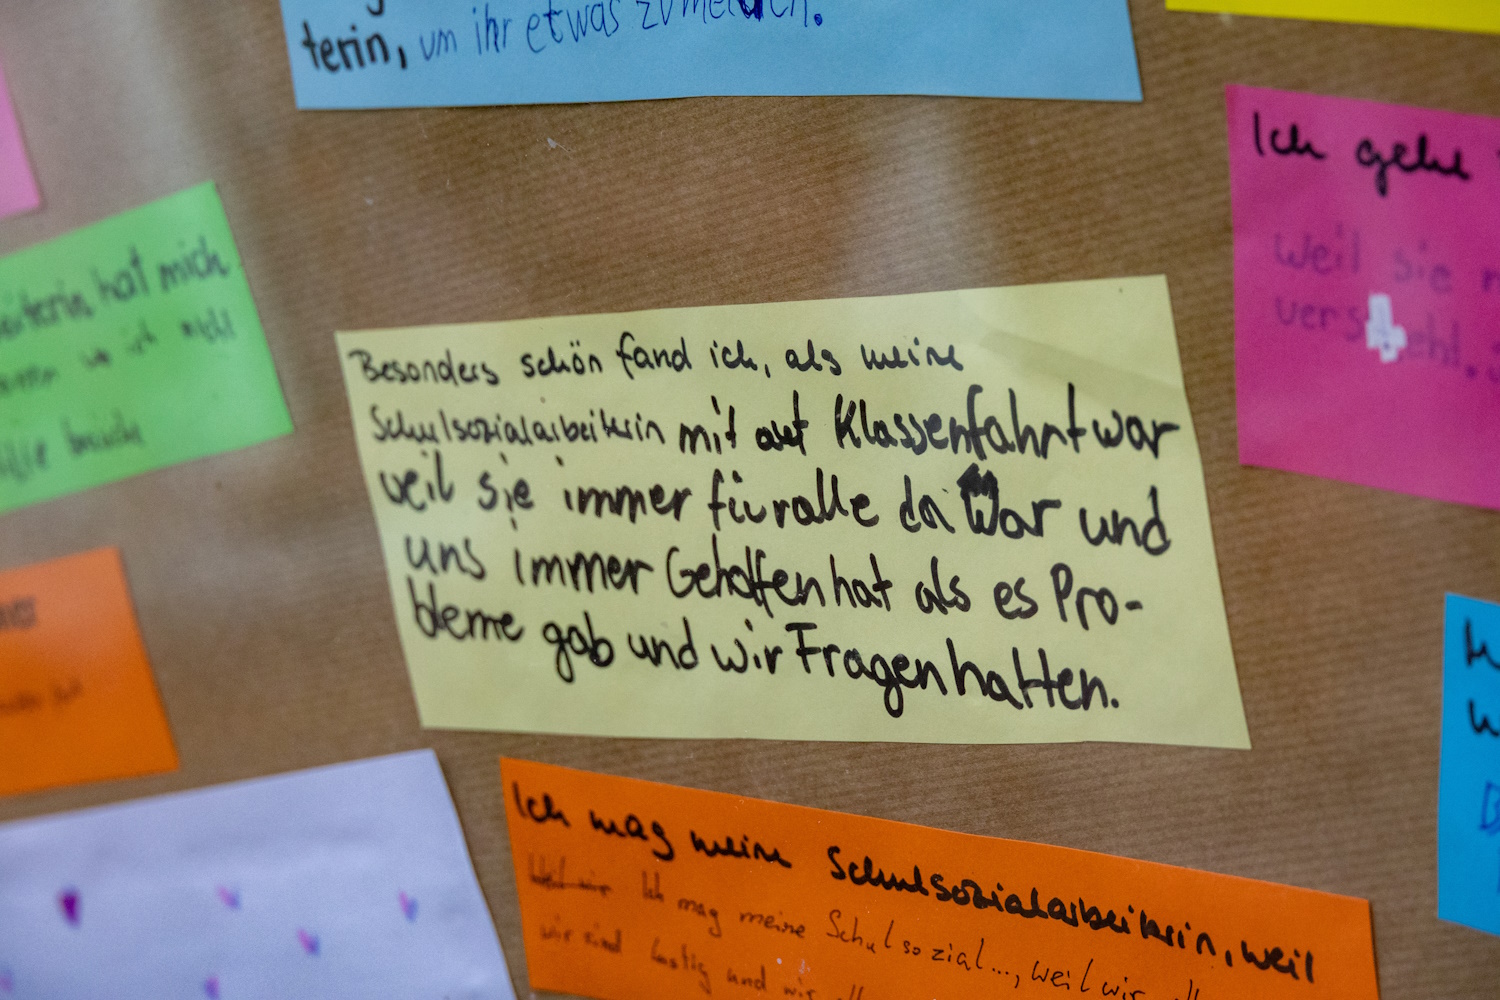 terin, um ihr etwas zu melden.
Ich gehe
weil sie
eiterin hat mich
wo ich nicht
Besonders schön fand ich, als meine
Schulsozialarbeiterin mit auf Klassenfahrt war
weil sie immer für alle da war und
uns immer Geholfen hat als es Pro-
bleme gab und wir Fragen hatten.
Ich mag meine Schulsozialarbeiterin, weil
Ich mag meine Schulsozial..., weil wir
wir sind lustig und